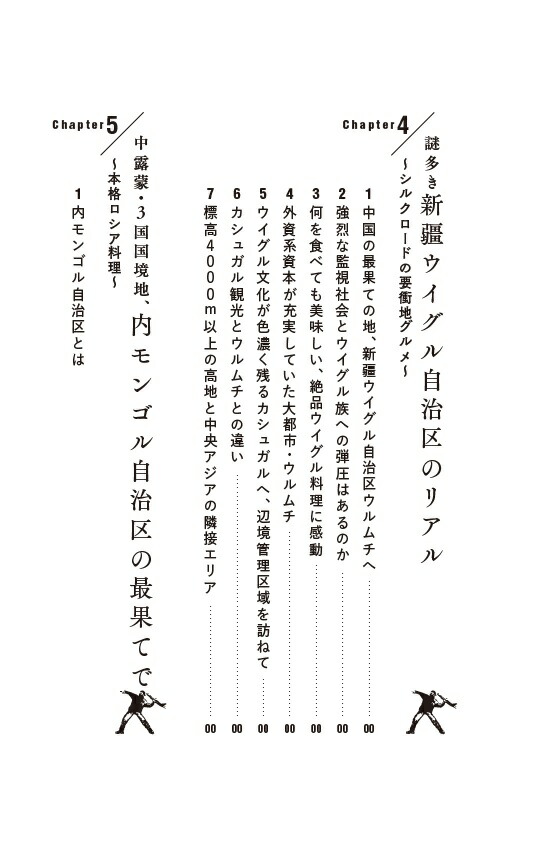 Chapter4
謎多き新疆ウイグル自治区のリアル
〜シルクロードの要衝地グルメ〜
1 中国の最果ての地、新疆ウイグル自治区ウルムチへ 00
2 強烈な監視社会とウイグル族への弾圧はあるのか 00
3 何を食べても美味しい、絶品ウイグル料理に感動 00
4 外資系資本が充実していた大都市・ウルムチ 00
5 ウイグル文化が色濃く残るカシュガルへ、辺境管理区域を訪ねて 00
6 カシュガル観光とウルムチとの違い 00
7 標高4000m以上の高地と中央アジアの隣接エリア 00
Chapter5
中露蒙・3国国境地、内モンゴル自治区の最果てで
〜本格ロシア料理〜
1 内モンゴル自治区とは